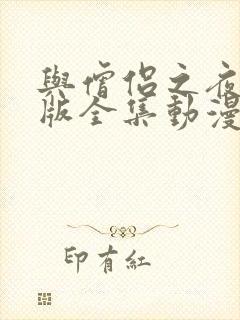 與僧侶之夜
版全集動漫
印有紅